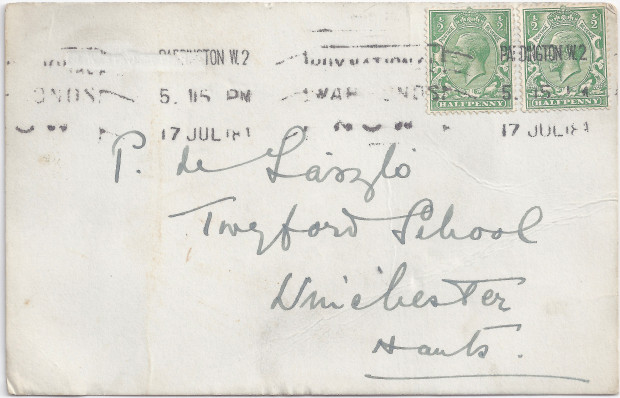 PADDINGTON W.2
5. 15 PM
17 JUL 18
NATIONAL
WAR BONDS
NOW
PADDINGTON W.2
5. 15 PM
17 JUL 18
½ ½
HALFPENNY
½ ½
HALFPENNY
P. de László
Twyford School
Winchester
Hants.